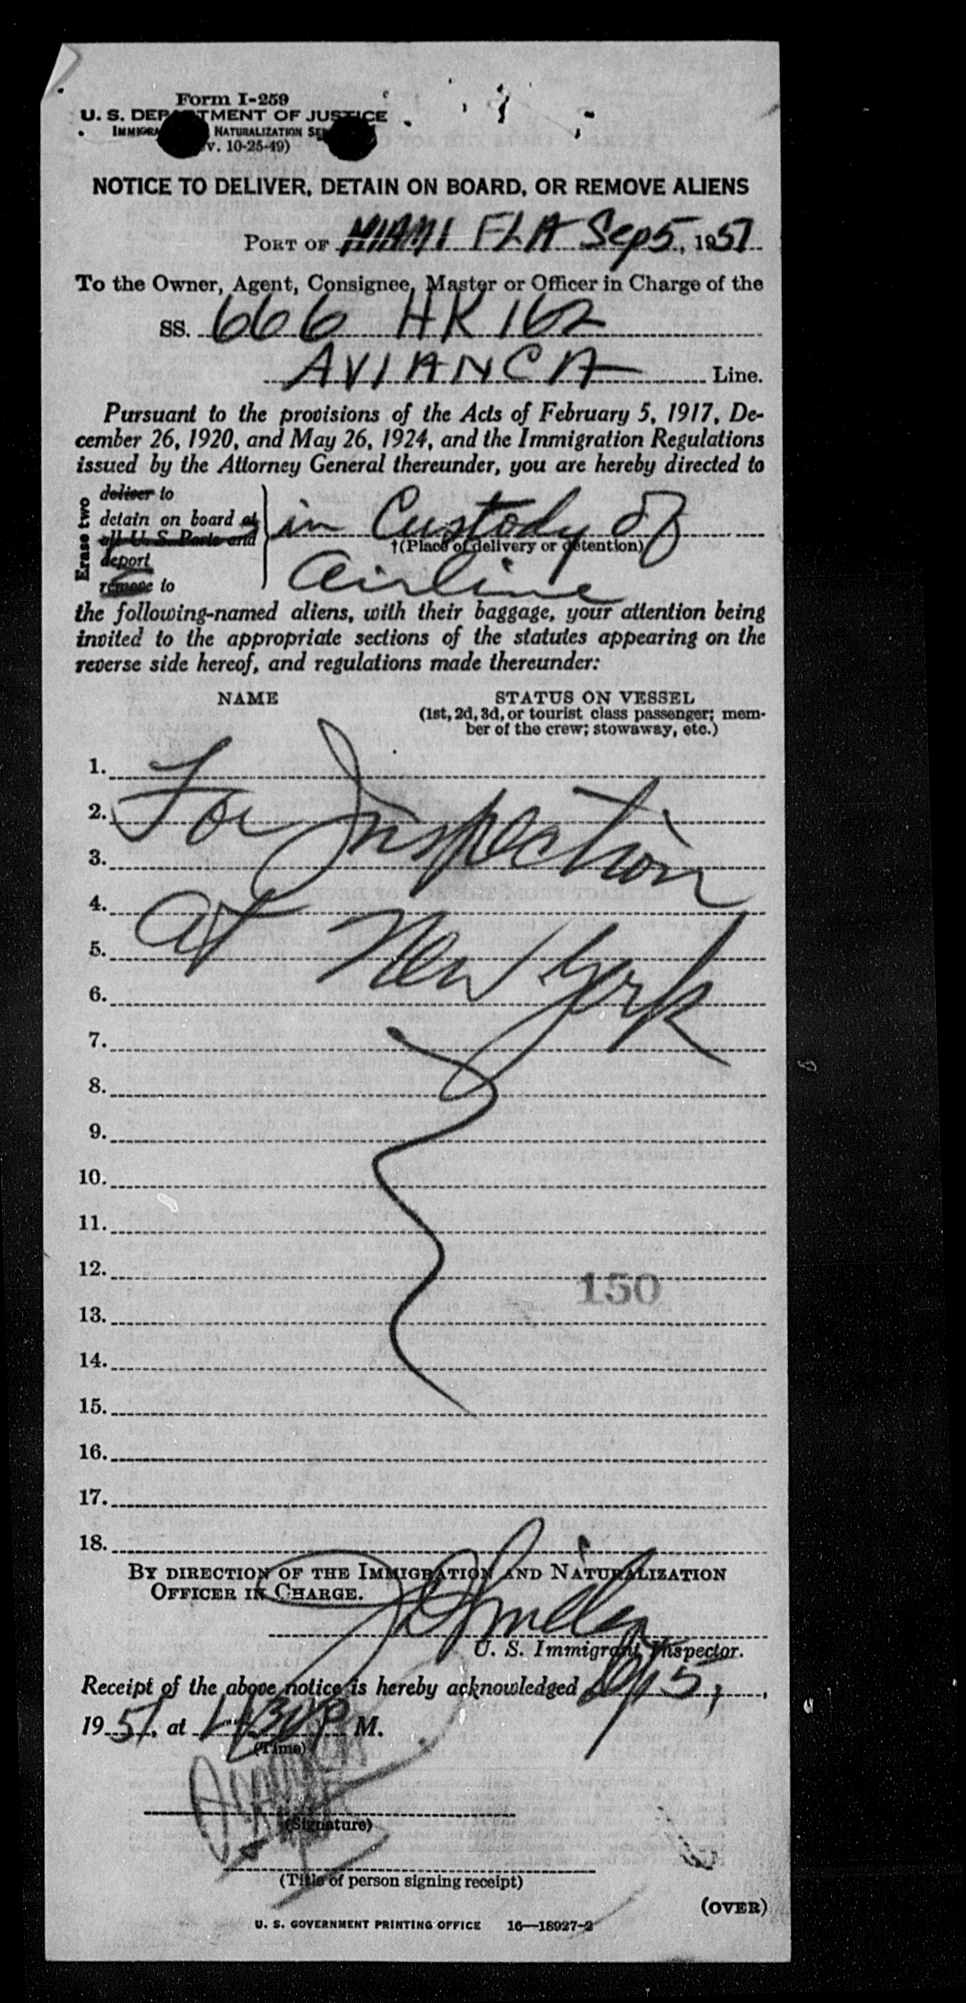 Form I-259
U. S. DEPARTMENT OF JUSTICE
IMMIGRA NATURALIZATION SE
v. 10-25-49)
NOTICE TO DELIVER, DETAIN ON BOARD, OR REMOVE ALIENS
PORT OF MIAMI FLA Sep 5, 1951
To the Owner, Agent, Consignee, Master or Officer in Charge of the
SS. 666 HK 162
AVIANCA Line.
Pursuant to the provisions of the Acts of February 5, 1917, De-
cember 26, 1920, and May 26, 1924, and the Immigration Regulations
issued by the Attorney General thereunder, you are hereby directed to
Erase two
deliver to
detain on board at
all U. S. Ports and
deport
remove to
in Custody of
†(Place of delivery or detention)
Airline
the following-named aliens, with their baggage, your attention being
invited to the appropriate sections of the statutes appearing on the
reverse side hereof, and regulations made thereunder:
NAME STATUS ON VESSEL
(1st, 2d, 3d, or tourist class passenger; mem-
ber of the crew; stowaway, etc.)
1.
2. For Inspection
3.
4.
5. at New York
6.
7.
8.
9.
10.
11.
12.
150
13.
14.
15.
16.
17.
18.
BY DIRECTION OF THE IMMIGRATION AND NATURALIZATION
OFFICER IN CHARGE.
U. S. Immigrant Inspector.
Receipt of the above notice is hereby acknowledged Sep 5,
1951, at 430P M.
(Time)
(Signature)
(Title of person signing receipt)
(OVER)
U. S. GOVERNMENT PRINTING OFFICE 16—18927-2